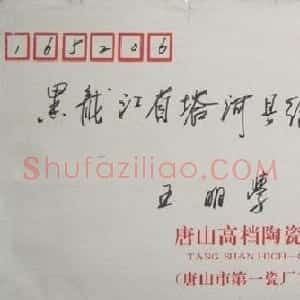 165206
黑龙江省塔河县
Shufaziliao.com
王明学
唐山高档陶瓷
TANG SHAN
(唐山市第一瓷厂